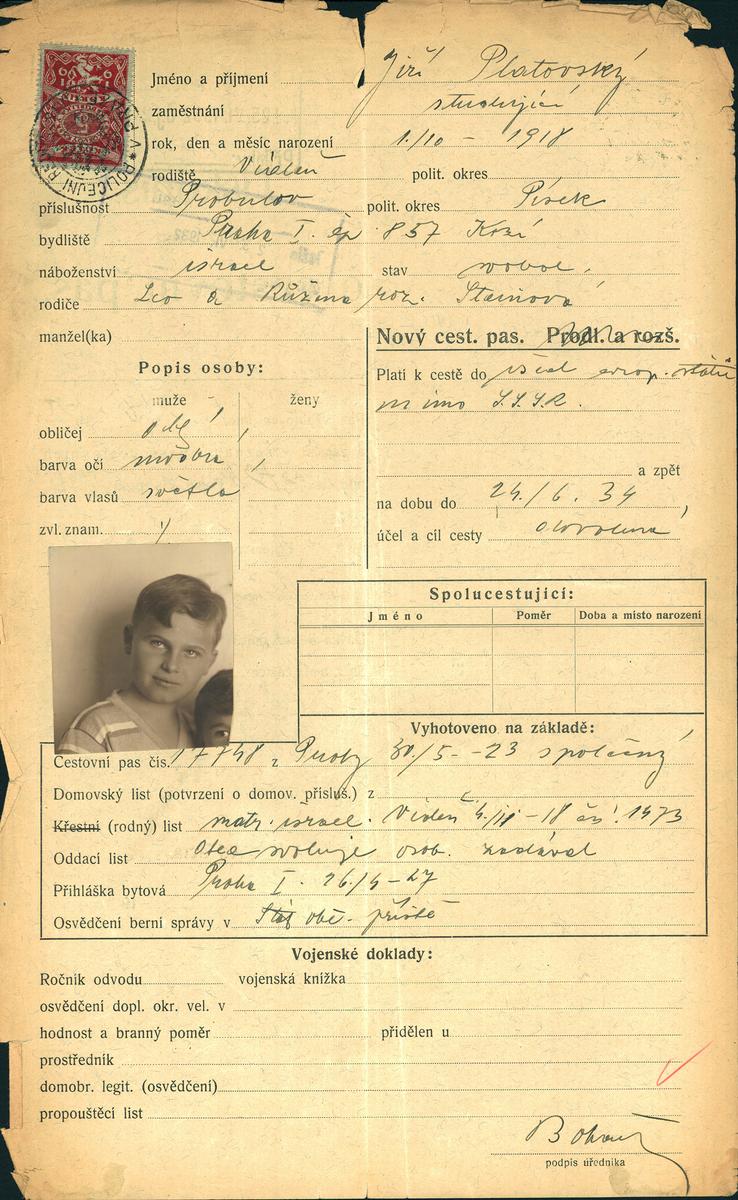 POLICEJNÍ
Jméno a příjmení Jiří Platovský
zaměstnání studující
rok, den a měsíc narození 1./10 – 1918
rodiště Vídeň polit. okres
příslušnost Probulov polit. okres Písek
bydliště Praha I. čp 857 Kozí
náboženství israel stav svobod.
rodiče Leo a Růžena roz. Steinová
manžel(ka)
Nový cest. pas. Prodl. a rozš.
Popis osoby:
Platí k cestě do všech evrop. států
mimo S.S.S.R.
muže ženy
obličej
barva očí modrá
barva vlasů světlá
zvl. znam.
a zpět
na dobu do 24./6. 34
účel a cíl cesty
Spolucestující:
Jméno Poměr Doba a místo narození
Vyhotoveno na základě:
Cestovní pas čís. 17748 z Prahy 30/5 - 23 společný
Domovský list (potvrzení o domov. přísluš.) z
Křestní (rodný) list matr. israel. Vídeň
Oddací list Otec svoluje osob. zadával
Přihláška bytová Praha I. 26/4 - 27
Osvědčení berní správy v
Vojenské doklady:
Ročník odvodu vojenská knížka
osvědčení dopl. okr. vel. v
hodnost a branný poměr přidělen u
prostředník
domobr. legit. (osvědčení)
propouštěcí list
podpis úředníka